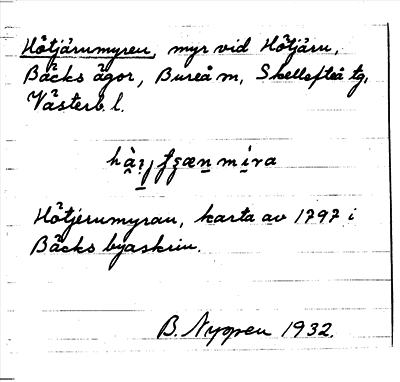 Hötjärnmyren, myr vid Hötjärn,
Bäcks ägor, Bureå m, Skellefteå tg,
Västerb. l.
Hötjernmyran, karta av 1797 i
Bäcks byaskrin.
B. Nyman 1932.